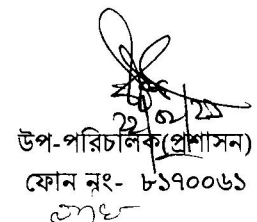 উপ-পরিচালক(প্রশাসন)
ফোন নং- ৮১৭০০৬১